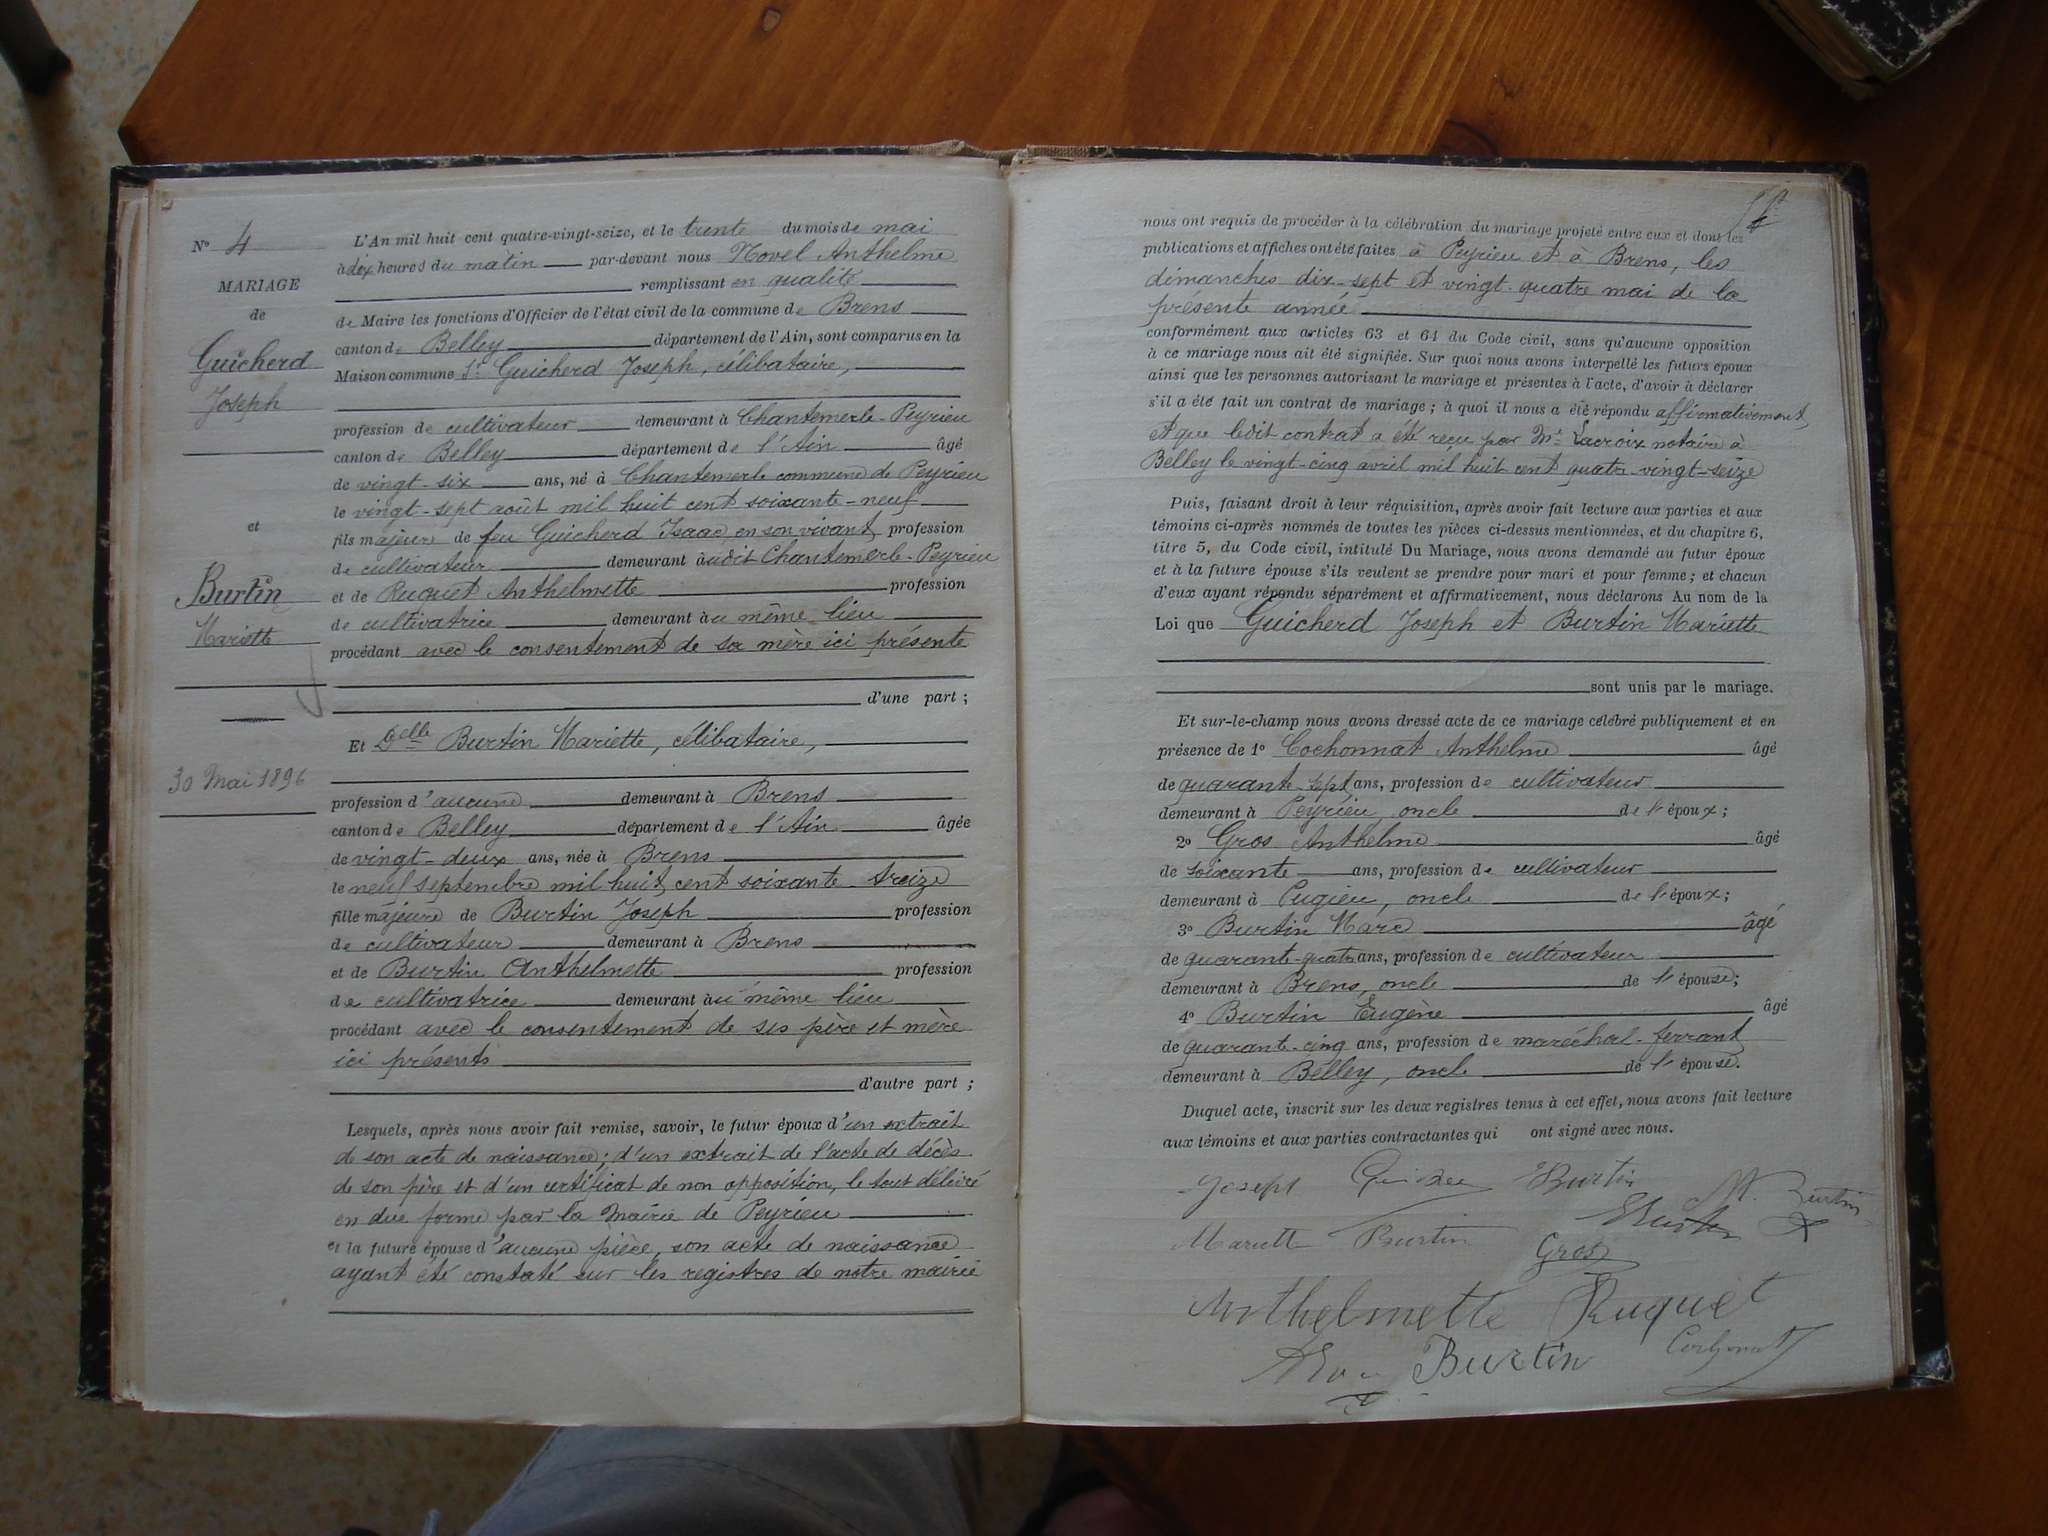 N° 4
MARIAGE
de
Guicherd
Joseph
et
Burtin
Mariette
30 Mai 1896
L'An mil huit cent quatre-vingt-seize, et le trente du mois de mai
à dix heures du matin par-devant nous Novel Anthelme
remplissant en qualité
de Maire les fonctions d'Officier de l'état civil de la commune de Brens
canton de Belley département de l'Ain, sont comparus en la
Maison commune Sr Guicherd Joseph, célibataire,
profession de cultivateur demeurant à Chantemerle-Peyrieu
canton de Belley département de l'Ain âgé
de vingt-six ans, né à Chantemerle commune de Peyrieu
le vingt-sept août mil huit cent soixante-neuf
fils majeur de feu Guicherd Isaac en son vivant, profession
de cultivateur demeurant audit Chantemerle-Peyrieu
et de Ruguet Anthelmette profession
de cultivatrice demeurant au même lieu
procédant avec le consentement de sa mère ici présente
d'une part ;
Et Delle Burtin Mariette, célibataire,
profession d'aucune demeurant à Brens
canton de Belley département de l'Ain âgée
de vingt-deux ans, née à Brens
le neuf septembre mil huit cent soixante-treize
fille majeure de Burtin Joseph profession
de cultivateur demeurant à Brens
et de Burtin Anthelmette profession
de cultivatrice demeurant au même lieu
procédant avec le consentement de ses père et mère
ici présents
d'autre part ;
Lesquels, après nous avoir fait remise, savoir, le futur époux d'un extrait
de son acte de naissance; d'un extrait de l'acte de décès
de son père et d'un certificat de non opposition, le tout délivré
en due forme par la Mairie de Peyrieu
et la future épouse d'aucune pièce, son acte de naissance
ayant été constaté sur les registres de notre mairie
nous ont requis de procéder à la célébration du mariage projeté entre eux et dont les
publications et affiches ont été faites à Peyrieu et à Brens, les
dimanches dix-sept et vingt-quatre mai de la
présente année
conformément aux articles 63 et 64 du Code civil, sans qu'aucune opposition
à ce mariage nous ait été signifiée. Sur quoi nous avons interpellé les futurs époux
ainsi que les personnes autorisant le mariage et présentes à l'acte, d'avoir à déclarer
s'il a été fait un contrat de mariage ; à quoi il nous a été répondu affirmativement,
et que ledit contrat a été reçu par Me Lacroix notaire à
Belley le vingt-cinq avril mil huit cent quatre-vingt-seize
Puis, faisant droit à leur réquisition, après avoir fait lecture aux parties et aux
témoins ci-après nommés de toutes les pièces ci-dessus mentionnées, et du chapitre 6,
titre 5, du Code civil, intitulé Du Mariage, nous avons demandé au futur époux
et à la future épouse s'ils veulent se prendre pour mari et pour femme ; et chacun
d'eux ayant répondu séparément et affirmativement, nous déclarons Au nom de la
Loi que Guicherd Joseph et Burtin Mariette
sont unis par le mariage.
Et sur-le-champ nous avons dressé acte de ce mariage célébré publiquement et en
présence de 1° Cochonnat Anthelme âgé
de quarante-sept ans, profession de cultivateur
demeurant à Peyrieu, oncle de l'époux ;
2° Gros Anthelme âgé
de soixante ans, profession de cultivateur
demeurant à Pugieu, oncle de l'époux ;
3° Burtin Marc âgé
de quarante-quatre ans, profession de cultivateur
demeurant à Brens, oncle de l'épouse;
4° Burtin Eugène âgé
de quarante-cinq ans, profession de maréchal-ferrant
demeurant à Belley, oncle de l'épouse.
Duquel acte, inscrit sur les deux registres tenus à cet effet, nous avons fait lecture
aux témoins et aux parties contractantes qui ont signé avec nous.
Joseph Burtin
M. Burtin
Mariette Burtin
Gros
Anthelmette Ruguet
Burtin